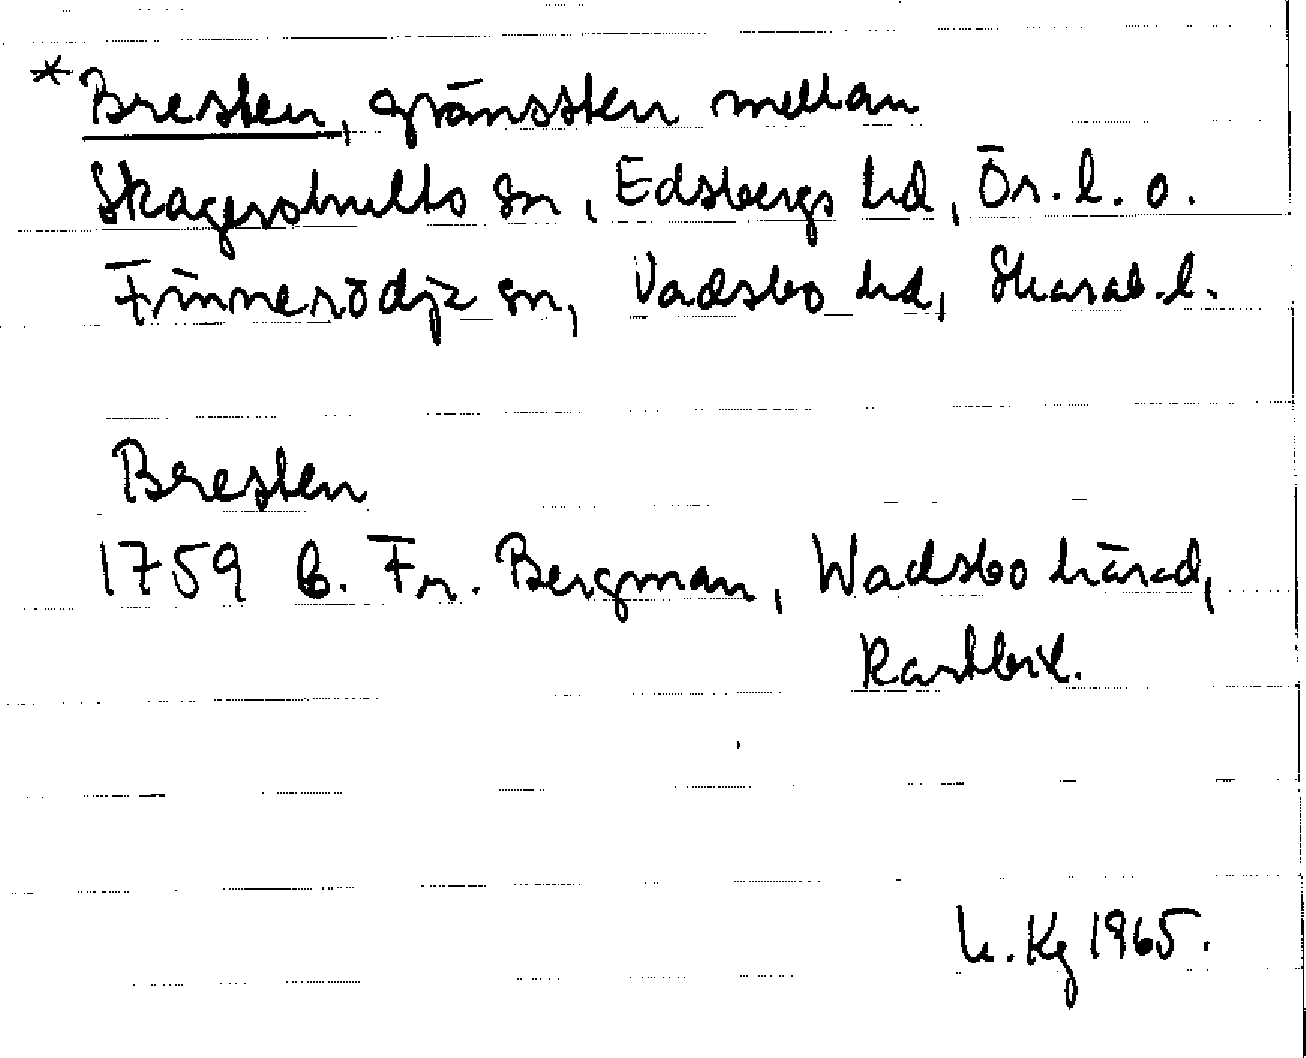 * Bresten, gränssten mellan
Skagershults sn, Edsbergs hd, Ör. l. o.
Finnerödja sn, Vadsbo hd, Skarab. l.
Bresten
1759 B. Fr. Bergman, Wadsbo härad,
Kartbeil.
Kg 1965.